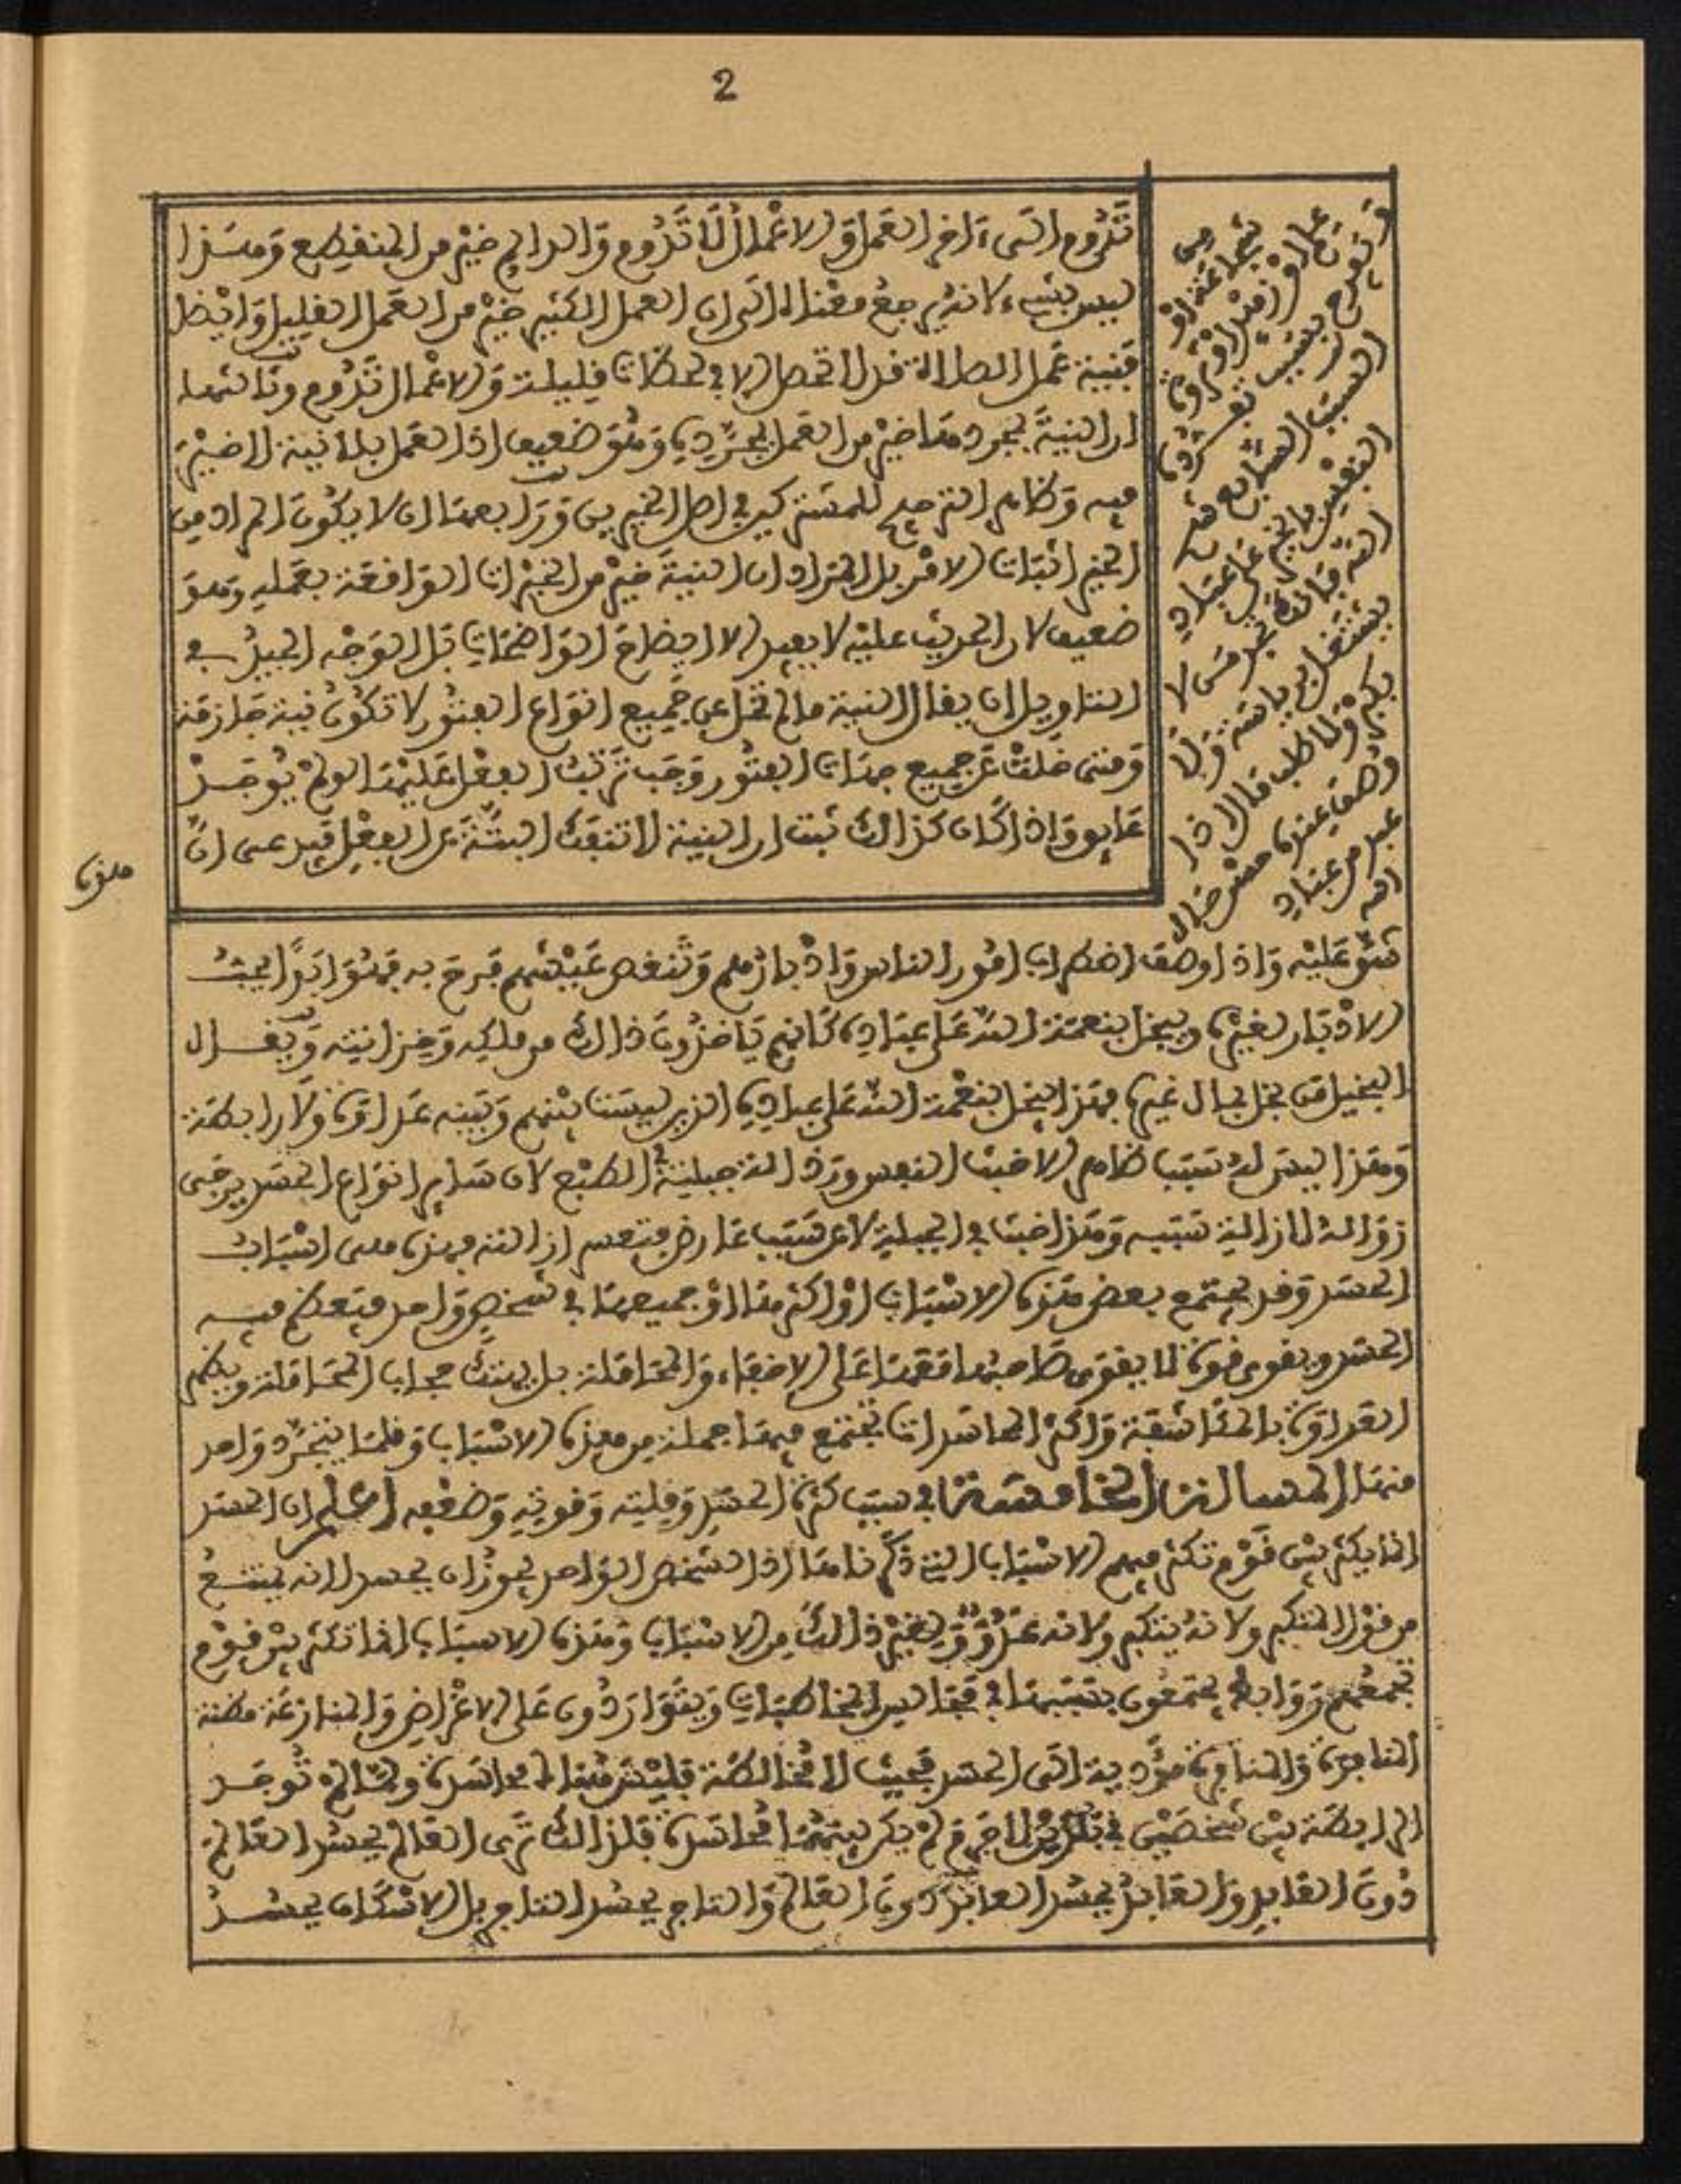 2
تَدُوم الى ءاخر العمل وَالاعْمال لَا تَدُوم وَالدائم خيْر من المنقطع وَهـذا
ليس بشيء لانه يرجع معناه الى ان العمل الكثير خيْر من العَمل القليل وَايْضا
فنية عَمل الصلاة قد لا تحصل الا في لحظات قليلة وَالاعْمال تَدُوم وثالثها
ان النيةَ بمجردها خيْر من العَمل بمجَرَّدِهِ وَهُوَ ضعيف اذ العَمل بلا نية لا خيْر
فيه وَظاهر الترجيح للمشتركين في اصل الخير وَرابعها ان لا يكُونَ المراد من
الخير اثبات الافضل بل المراد ان النيةَ خيْر من الخيْرات الوَاقعَة بعَمله وهوَ
ضعيف لان الحديث عليْه لا يفيد الا ايضاح الوَاضحَاتِ بَل الوَجْه الجيدُ في
التاويل ان يقال النية ما لم تخل عن جَميع انوَاع الفتُور لا تكُونُ نية جَازمَة
وَمتى خلتْ عَن جميع جهَات الفتُور وَجَب تَرتبُ الفعْل عَليْهَا لو لمْ يُوجَـدْ
عَايق وَاذا كَان كذالك ثبت ان النية لا تنفَك البتَّةَ عن الفعْل فيدعى انَّ
هذه
وَيفرح بسبب
السبب السَّابع
بالخير عَلى عبَادِ
اللّه فانكَ تجد مَن لا
يشتغل برياسَة وَلَا
بكبر وَلَا طلب مَال اذا
وُصفَ عندهُ حسْن حَال
عبد من عبَادِ
الله
شقَّ عَليْه وَاذا وُصفَ اضطراب امُور الناس وَادْبارُهم وَتنغص عَيْشهم فَرحَ به فهُوَ ابَدًا يحبُّ
الادْبَار لغيْرهِ ويبخل بنعمَة اللّه عَلى عبَادِه كَانهم يَاخذُونَ ذالك من ملكِه وَخزانته وَيقـال
البخيل مَن بخل بمال غيره فهَذا يبخل بنعْمة اللّه عَلى عبادِهِ الذين ليسَت بيْنهم وَبَينه عَداوَة وَلَا رابطَة
وَهذا ليسَ لهُ سَبَب ظاهر الا خبث النفس ورذالة جبلية في الطبْع لان سَاير انوَاع الحسَد يرجَى
زوَالهُ لازالة سَببه وَهَذا خبث في الجبلة لا عن سَبَب عَارض فتعسر ازالته فهذهِ هى اسْبَابُ
الحسَد وَقد يجتمع بعض هَذه الاسْبَاب اوْ اكثرها اوْ جميعهَا في شخصٍ وَاحد فيَعظم فيـه
الحسَد ويقوى قوة لا يقوَى صَاحبُها مَعَهَا عَلى الاخفاء وَالمجَامَلة بل يهتك حجاب المجَامَلة ويظهر
العَدَاوَة بالمكَاشفَة وَاكثر المحاسَدات تجتمع فيهَا جملة من هذه الاسْبَاب وَقلمَا يتجَرَّد وَاحد
منهَا المسالة الخامسَة في سبب كثرة الحسَدِ وَقلتِه وَقوته وَضعْفه اعْلم ان الحسَد
انما يكثر بيْن قَوْم تكثر فيهم الاسْبَاب التي ذكَرْناهَا اذ الشخص الوَاحد يجوزُ ان يحسد لانه يمتنـعُ
من قوْل المتكبر ولانهُ يتكبر ولانه عَدُوٌّ وَلغيْر ذالكَ من الاسْبَاب وَهَذه الاسبَاب انما تكثر بيْن قوْم
تجمعُهم رَوَابط يجتمعُون بسَببهَا في مَجَاليس المخاطبَات وَيتَوَارَدُون عَلى الاغْراض وَالمنازعَة مظنة
المنافرة وَالمنافرة مؤَدية الَى الحسَد فحيْث لا مخالطَة فليْسَ هُنا محاسَدة وَلمَّا لمْ تُوجَـد
الرابطَة بيْن شخصَيْن في بَلديْن لا جَرم لمْ يكن بينَهُمَا مُحاسَدة فلذالك تَرى العَالم يحسُد العَالمَ
دُونَ العَابدِ وَالعَابدُ يحسُد العابد دُونَ العَالم وَالتاجر يحسُد التاجر بل الاسْكَاف يحسُـدُ